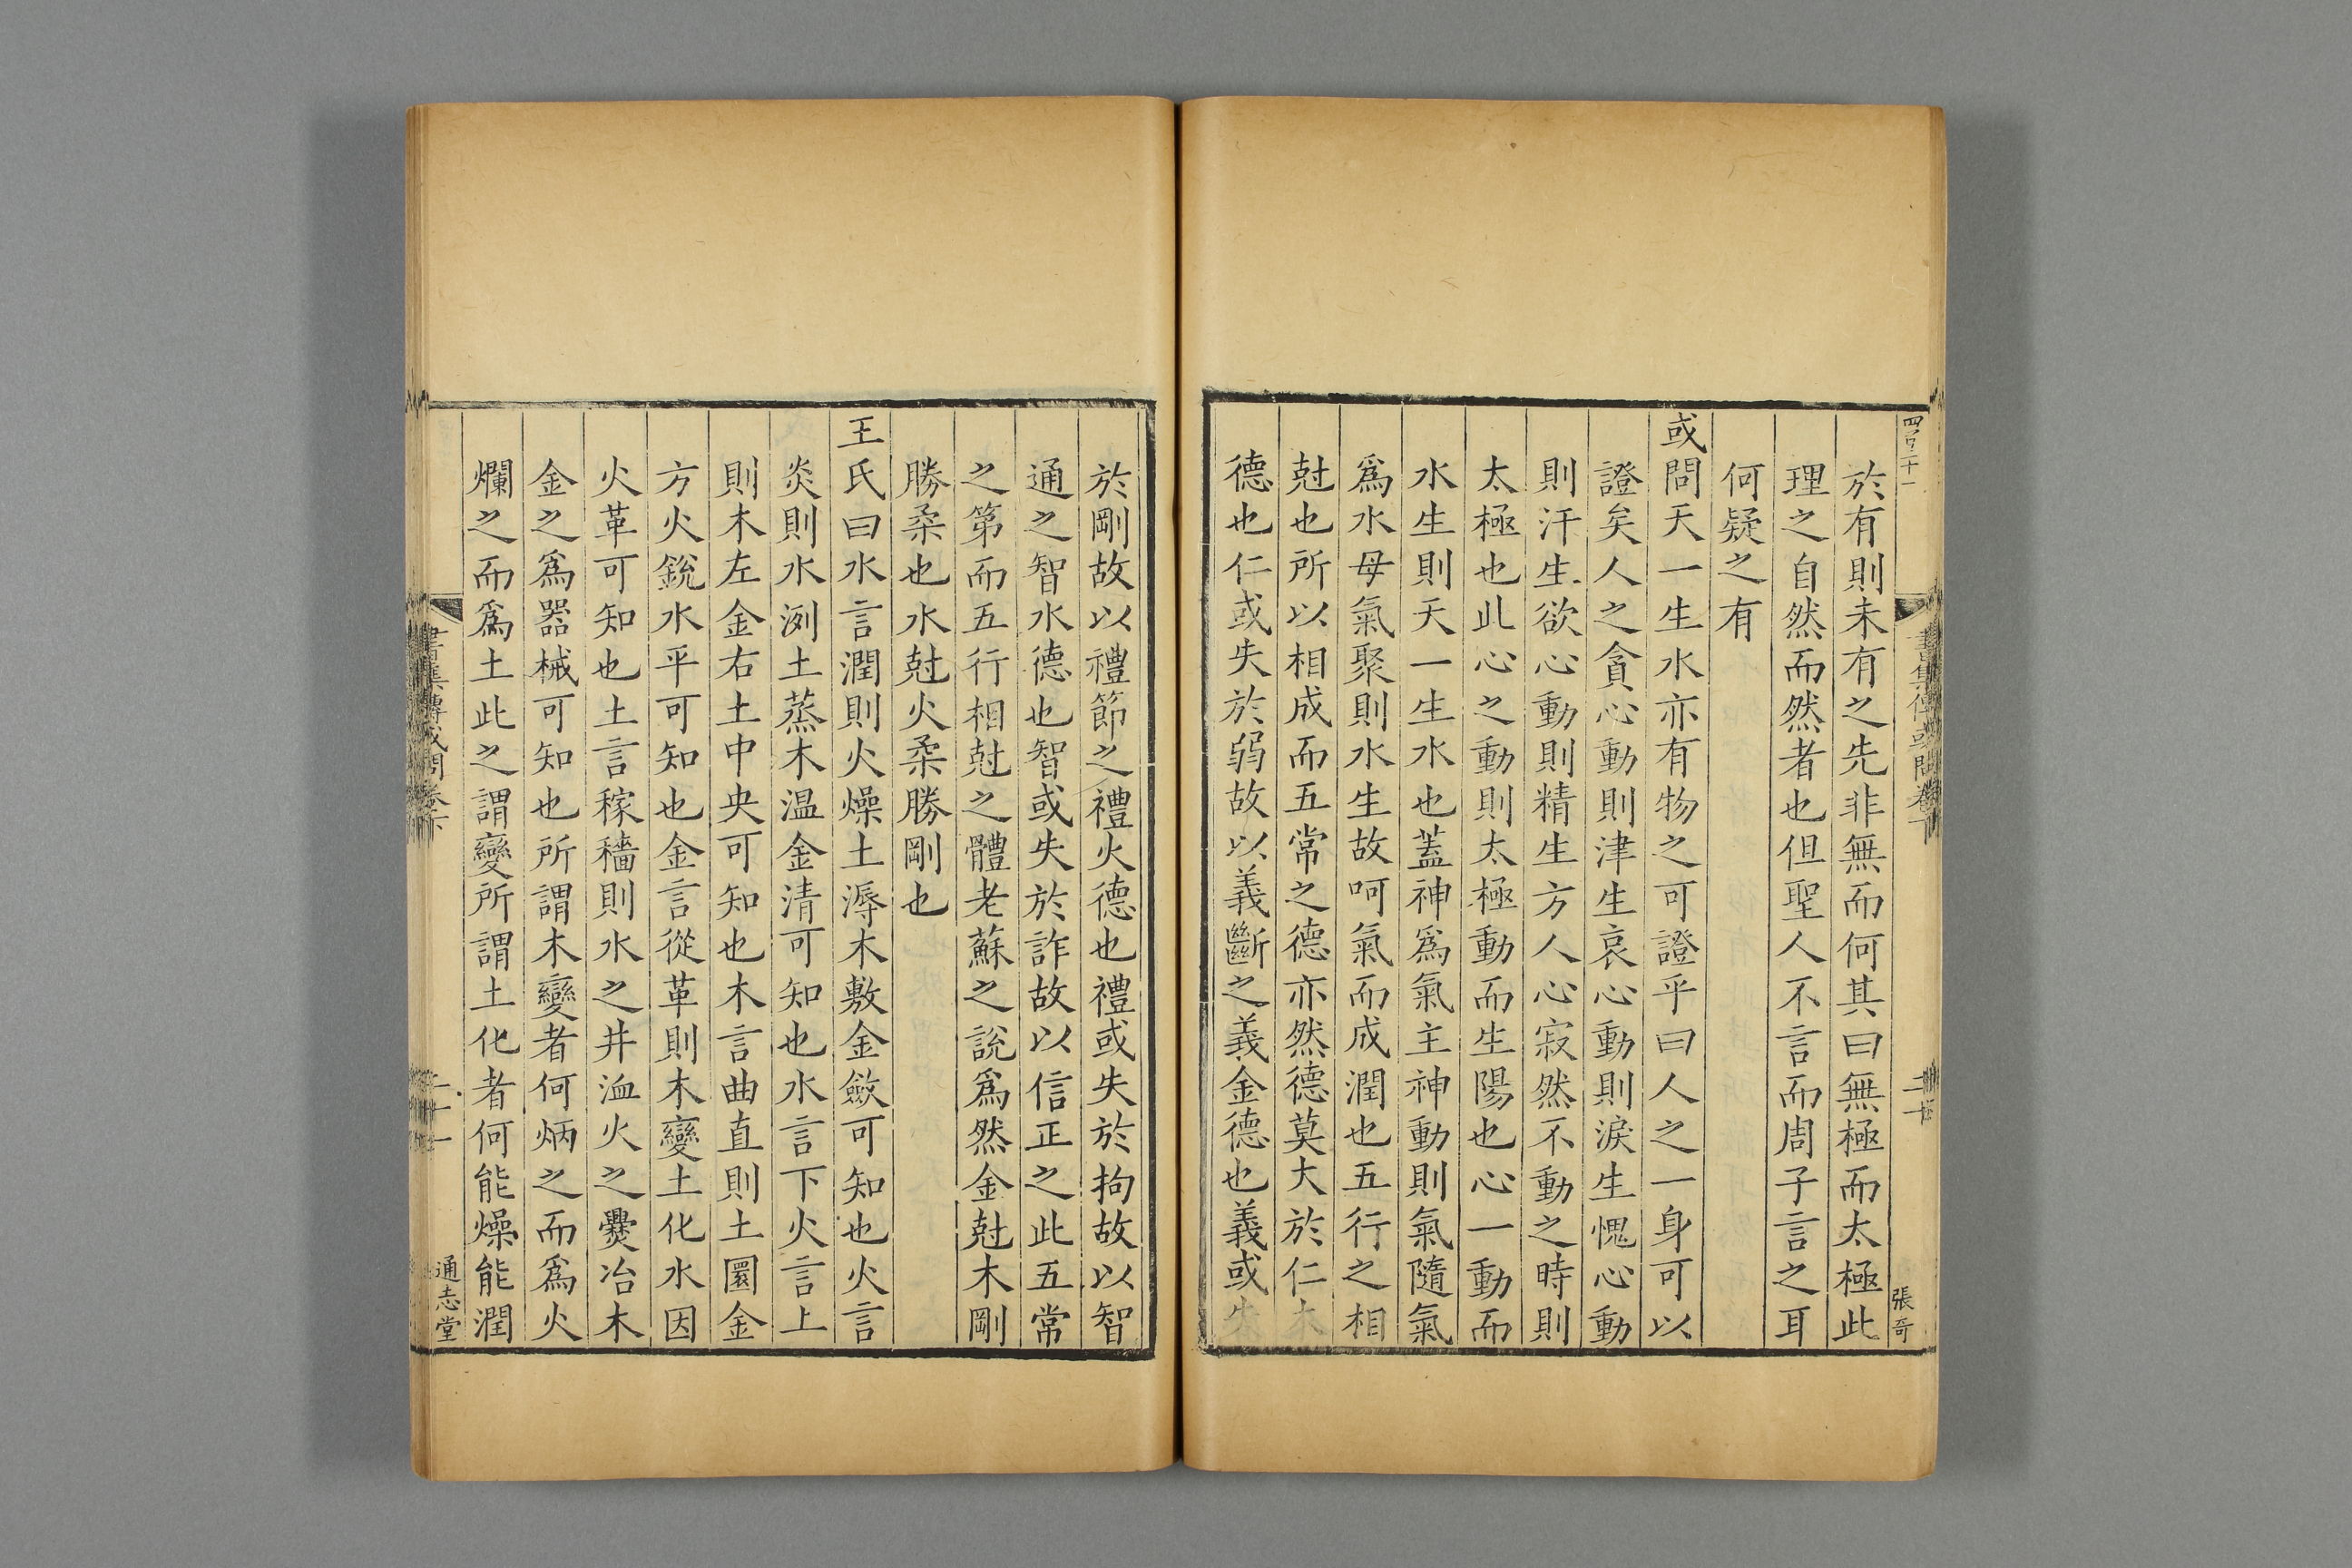 四百二十一
書集傳或問卷下
二十
張奇
於有則未有之先非無而何其曰無極而太極此
理之自然而然者也但聖人不言而周子言之耳
何疑之有
或問天一生水亦有物之可證乎曰人之一身可以
證矣人之貪心動則津生哀心動則淚生愧心動
則汗生欲心動則精生方人心寂然不動之時則
太極也此心之動則太極動而生陽也心一動而
水生則天一生水也蓋神爲氣主神動則氣隨氣
爲水母氣聚則水生故呵氣而成潤也五行之相
尅也所以相成而五常之德亦然德莫大於仁木
德也仁或失於弱故以義斷之義金德也義或失
於剛故以禮節之禮火德也禮或失於拘故以智
通之智水德也智或失於詐故以信正之此五常
之第而五行相尅之體老蘇之說爲然金尅木剛
勝柔也水尅火柔勝剛也
王氏曰水言潤則火燥土溽木敷金歛可知也火言
炎則水洌土蒸木温金清可知也水言下火言上
則木左金右土中央可知也木言曲直則土圜金
方火銳水平可知也金言從革則木變土化水因
火革可知也土言稼穡則水之井洫火之爨冶木
金之爲器械可知也所謂木變者何炳之而爲火
爛之而爲土此之謂變所謂土化者何能燥能潤
書集傳或問卷下
二十一
通志堂